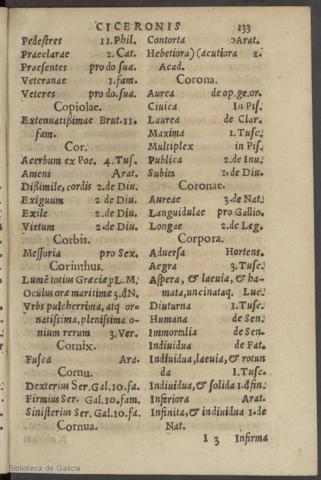 CICERONIS 133
Pedestres 11. Phil.
Praeclarae 2. Cat.
Praesentes pro do. sua.
Veteranae 1. fam.
Veteres pro do. sua.
Copiolae.
Extenuatißimae Brut. 11.
fam.
Cor.
Acerbum ex Poe. 4. Tus.
Amens Arat.
Dißimile, cordis 2. de Diu.
Exiguum 2. de Diu.
Exile 2. de Diu.
Vietum 2. de Diu.
Corbis.
Messoria pro Sex.
Corinthus.
Lumē totius Græciæ p L. M.
Oculus oræ maritimæ 3. d N.
Vrbs pulcherrima, atq; or-
natissima, plenissima o-
nium rerum 3. Ver.
Cornix.
Fusca Ara.
Cornu.
Dexterius Ser. Gal. 10. fa.
Firmius Ser. Gal. 10. fam.
Sinisterius Ser. Gal. 10. fa.
Cornua.
Contorta Arat.
Hebetiora) (acutiora 2.
Acad.
Corona.
Aurea de op. ge. or.
Ciuica in Pis.
Laurea de Clar.
Maxima 1. Tusc.
Multiplex in Pis.
Publica 2. de Inu.
Subita 2. de Diu.
Coronae.
Aureae 3. de Nat.
Languidulae pro Gallio.
Longae 2. de Leg.
Corpora.
Aduersa Hortens.
Aegra 3. Tusc.
Aspera, & laeuia, & ha-
mata, uncinataq. Luc.
Diuturna 1. Tusc.
Humana de Sen.
Immortalia de Sen.
Indiuidua de Fat.
Indiuidua, laeuia, & rotun
da 1. Tusc.
Indiuidua, & solida 1. d fin.
Inferiora Arat.
Infinita, & indiuidua 1. de
Nat.
I 3 Infirma
Biblioteca de Galicia